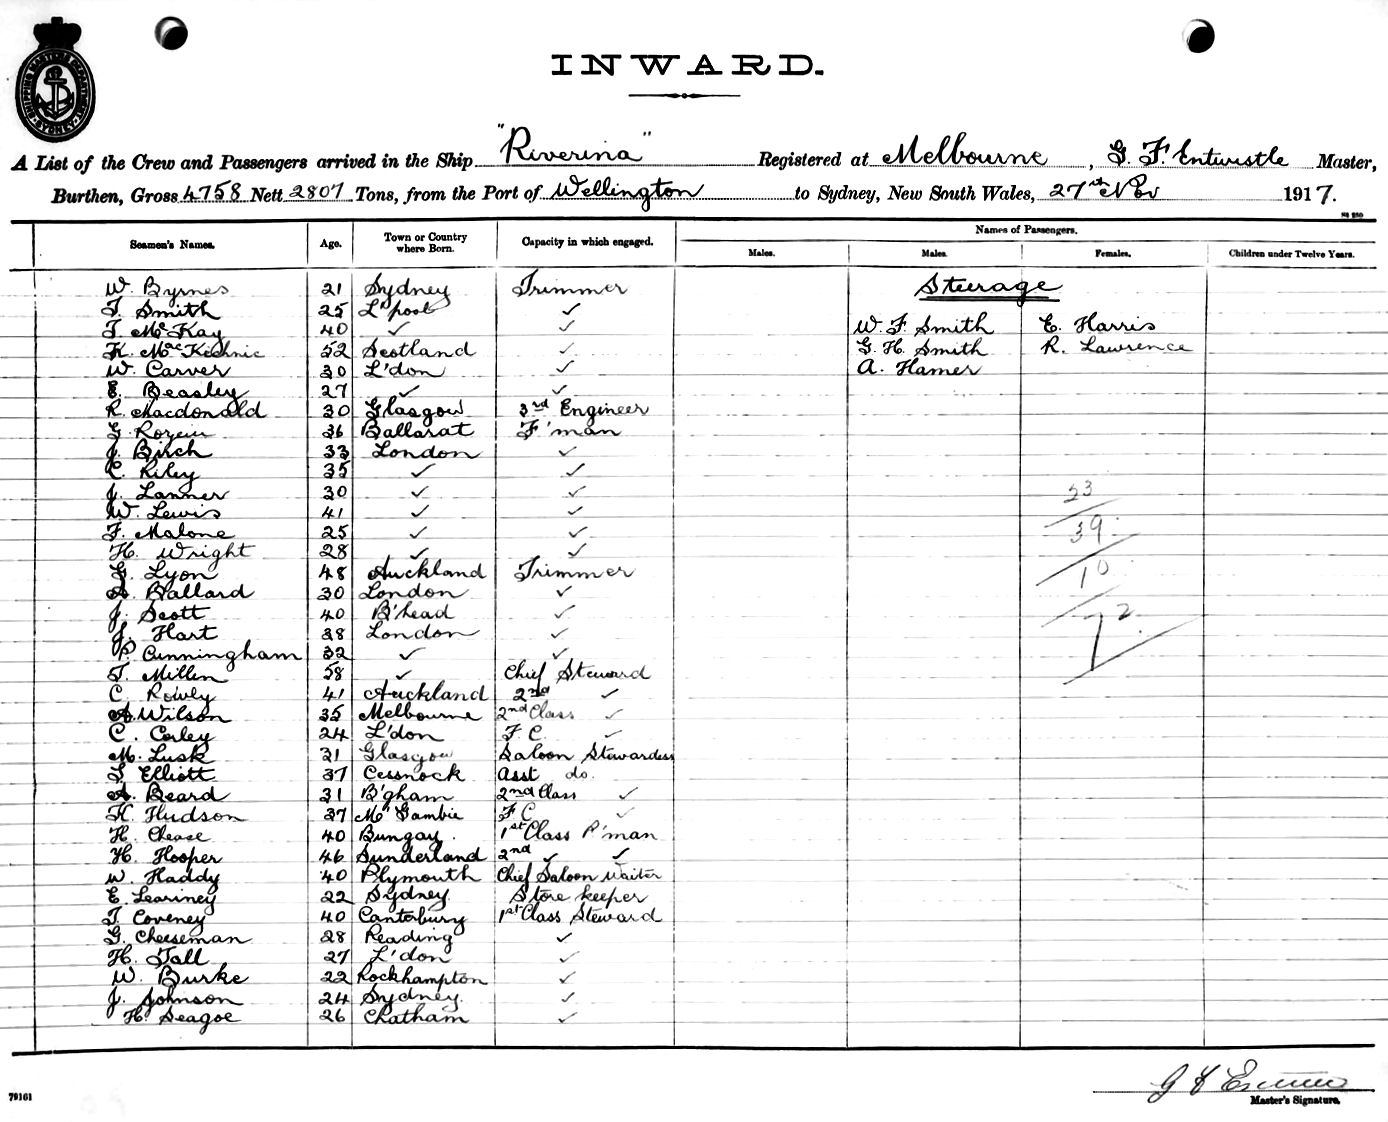 SHIPPING MASTER'S DEPARTMENT SYDNEY
INWARD.
A List of the Crew and Passengers arrived in the Ship "Riverina" Registered at Melbourne, G. F. Entwistle Master,
Burthen, Gross 4758 Nett 2807 Tons, from the Port of Wellington to Sydney, New South Wales, 27th Nov 1917.
Seamen's Names. Age. Town or Country where Born. Capacity in which engaged. Names of Passengers.
Males. Males. Females. Children under Twelve Years.
W. Byrnes 21 Sydney Trimmer Steerage
T. Smith 25 L'pool ✓
T. McKay 40 ✓ ✓ W. F. Smith E. Harris
K. MacKechnie 52 Scotland ✓ G. H. Smith R. Lawrence
W. Carver 30 L'don ✓ A. Hamer
E. Beasley 27 ✓ ✓
R. Macdonald 30 Glasgow 3rd Engineer
G. 36 Ballarat F'man
J. Birch 33 London ✓
C. Riley 35 ✓ ✓
J. Lanner 30 ✓ ✓ 23
W. Lewis 41 ✓ ✓
F. Malone 25 ✓ ✓ 39
H. Wright 28 ✓ ✓
G. Lyon 48 Auckland Trimmer 10
A. Ballard 30 London ✓
J. Scott 40 B'head ✓ 72
J. Hart 38 London ✓
P. Cunningham 32 ✓ ✓
T. Millen 58 ✓ Chief Steward
C. Rowly 41 Auckland 2nd ✓
A. Wilson 35 Melbourne 2nd Class ✓
C. Corley 24 L'don F.C. ✓
M. Lusk 31 Glasgow Saloon Stewardess
S. Elliott 37 Cessnock Asst do.
A. Beard 31 B'gham 2nd Class ✓
H. Hudson 37 Mt Gambie F C ✓
H. Chease 40 Bungay. 1st Class P'man
H. Hooper 46 Sunderland 2nd ✓ ✓
W. Haddy 40 Plymouth Chief Saloon Waiter
E. Leariney 22 Sydney. Store keeper
T. Coveney 40 Canterbury 1st Class Steward
G. Cheeseman 28 Reading ✓
H. Tall 27 L'don ✓
W. Burke 22 Rockhampton ✓
J. Johnson 24 Sydney. ✓
H. Seagoe 26 Chatham ✓
79161
Master's Signature.